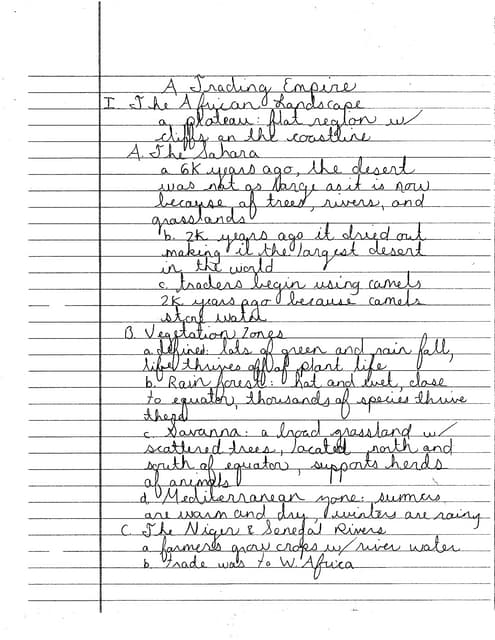 A Trading Empire
I. The African Landscape
a. plateau: flat region w/
cliffs on the coastline
A. The Sahara
a 6K years ago, the desert
was not as large as it is now
because of trees, rivers, and
grasslands
b. 2K years ago it dried out
making it the largest desert
in the world
c. traders begin using camels
2K years ago because camels
store water
B. Vegetation Zones
a. defined: lots of green and rain fall,
life thrives off of plant life
b. Rain forest: hot and wet, close
to equator, thousands of species thrive
there
c. Savanna: a broad grassland w/
scattered trees, located north and
south of equator, supports herds
of animals
d. Mediterranean zone: summers
are warm and dry, winters are rainy
C. The Niger & Senegal Rivers
a farmers grow crops w/ river water
b. trade was to W. Africa